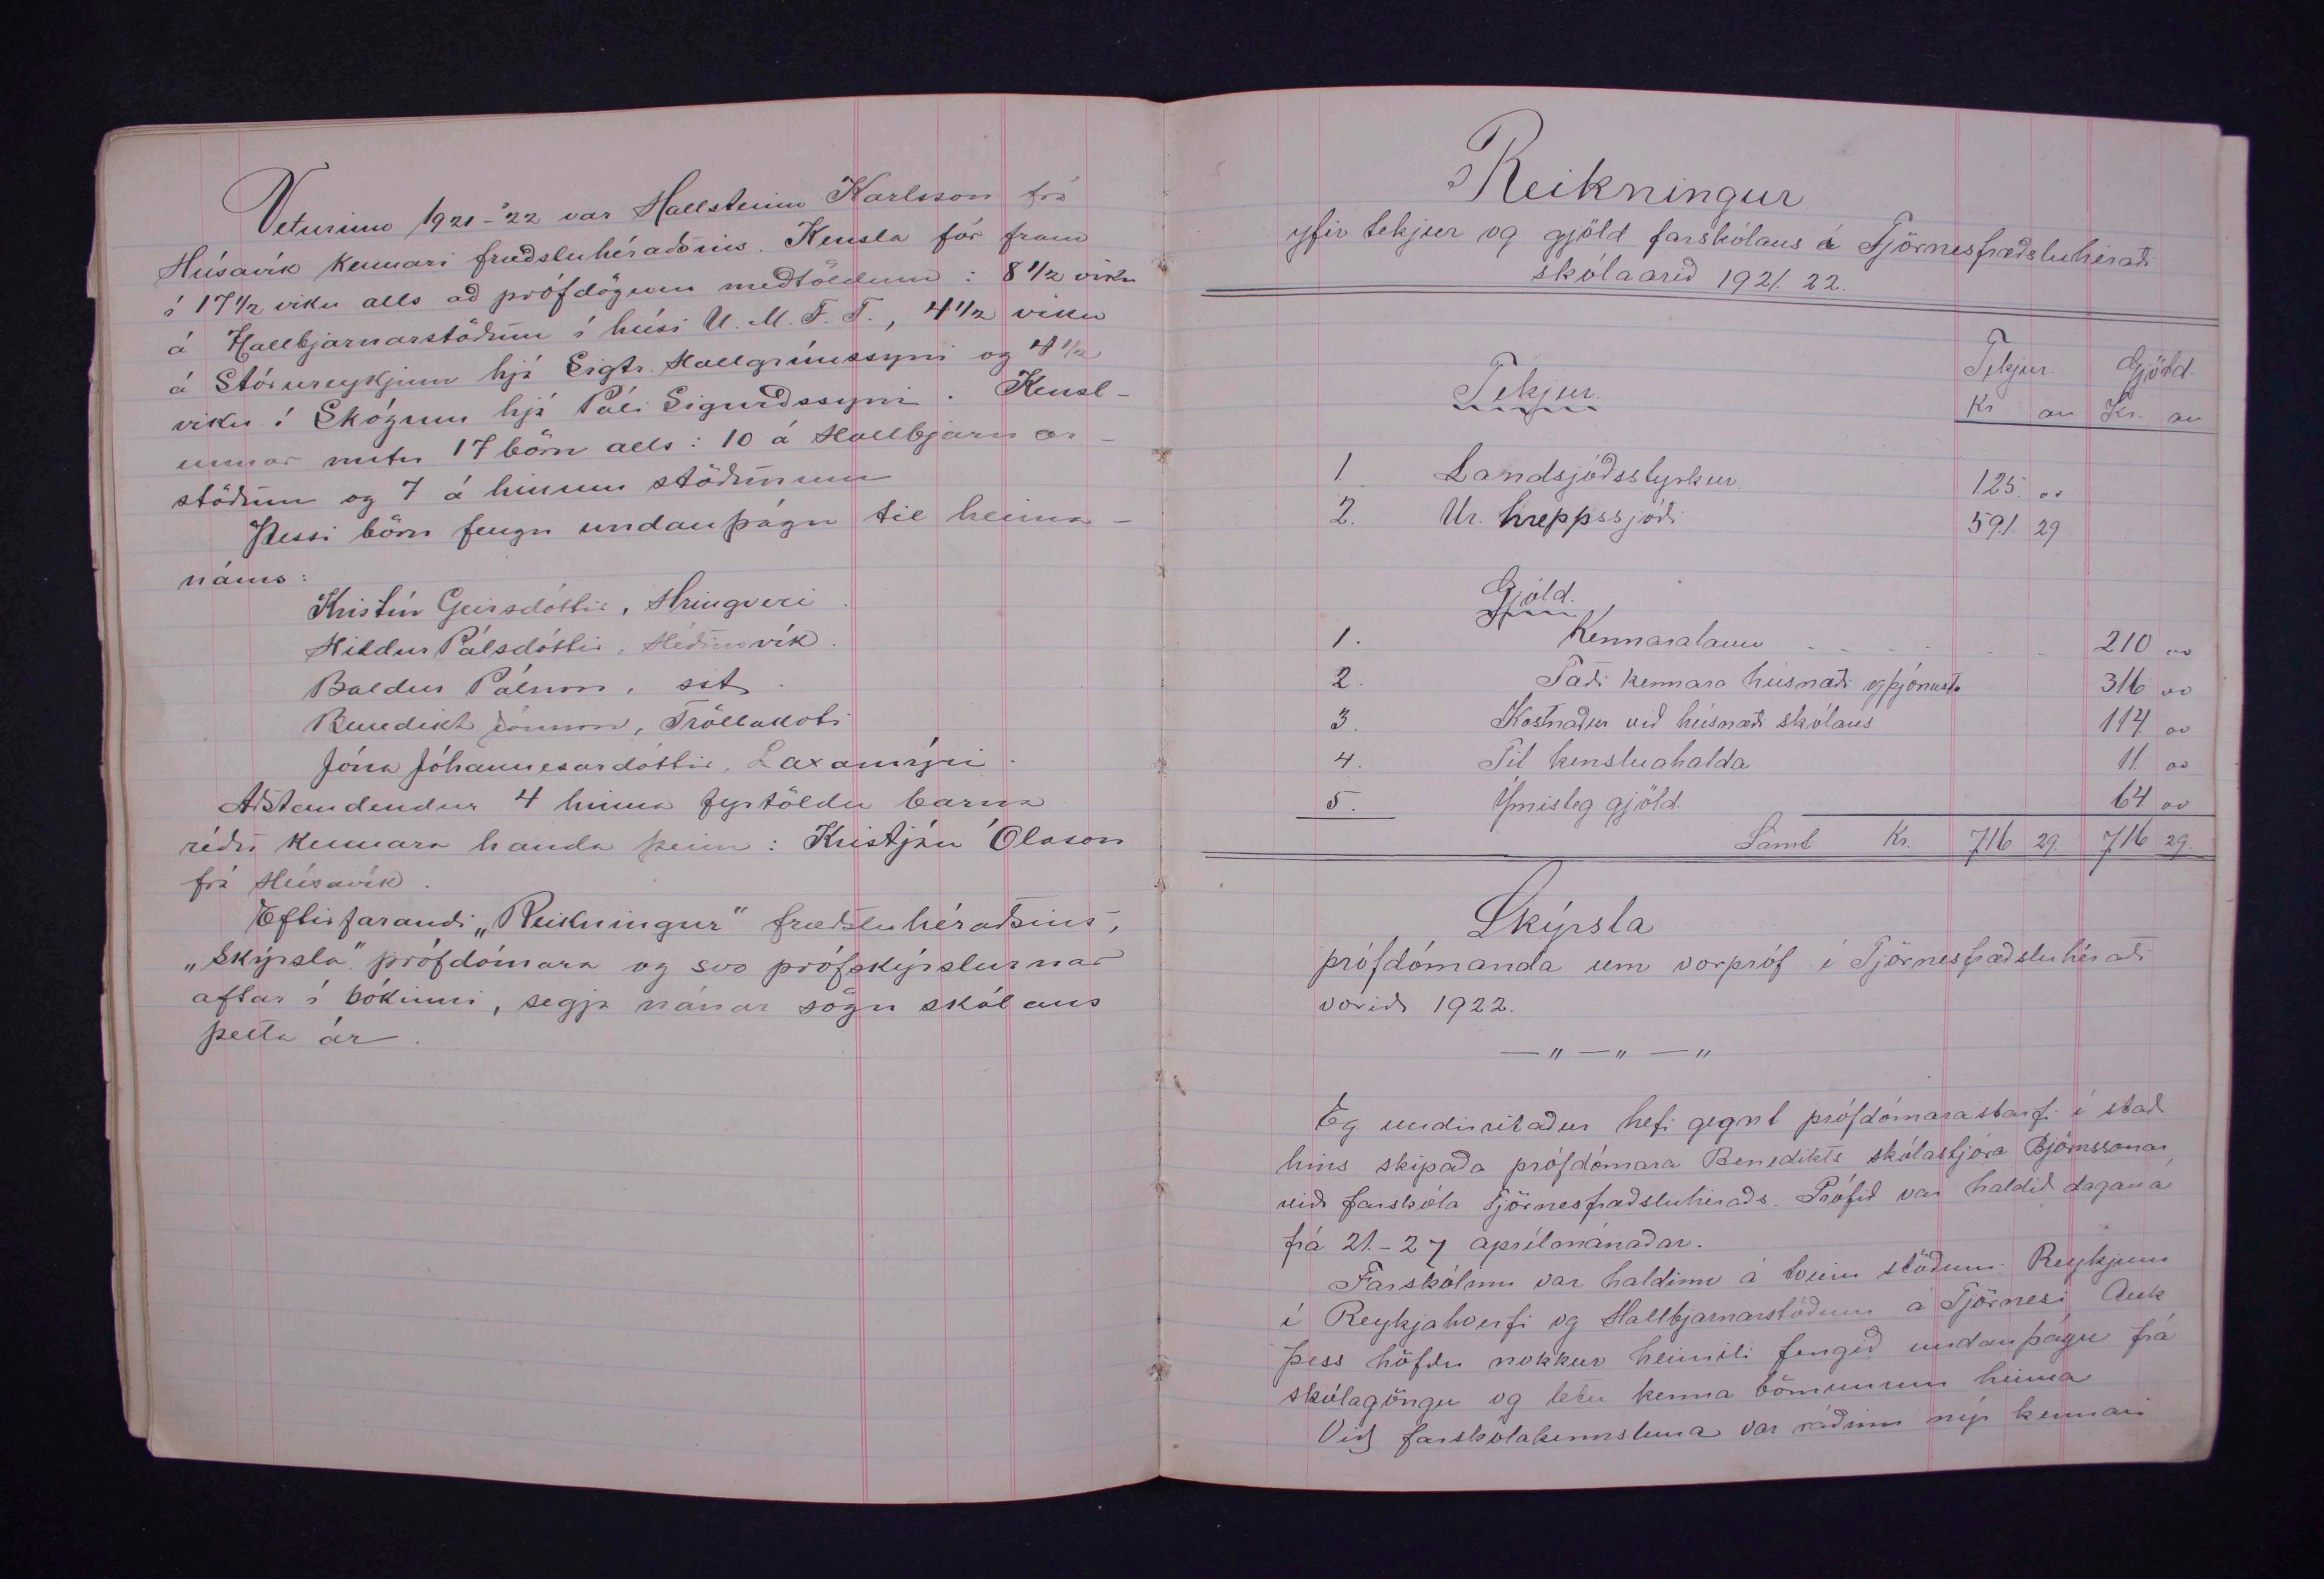 Veturinn 1921-'22 var Hallsteinn Karlsson frá
Húsavík kennari fræðsluhéraðsins. Kensla fór fram
í 17 1/2 viku alls að prófdögum meðtöldum: 8 1/2 viku
á Hallbjarnarstöðum í húsi U. M. F. T., 4 1/2 viku
á Stórureykjum hjá Sigtr. Hallgrímssyni og 4 1/2
viku í Skógum hjá Páli Sigurðssyni. Kensl-
unnar nutu 17 börn alls: 10 á Hallbjarnar-
stöðum og 7 á hinum stöðunum
Þessi börn fengu undanþágu til heima-
náms:
Kristín Geirsdóttir, Hringveri.
Hildur Pálsdóttir, Héðinsvík.
Baldur Pálsson, sst.
Benedikt Jónsson, Tröllakoti
Jóna Jóhannesardóttir, Laxamýri.
Aðstandendur 4 hinna fyrtöldu barna
réðu kennara handa þeim: Kristján Ólason
frá Húsavík.
Eftirfarandi „Reikningur" fræðsluhéraðsins,
„Skýrsla" prófdómara og svo prófskýrslurnar
aftar í bókinni, segja nánar sögu skólans
þetta ár.
Reikningur
yfir tekjur og gjöld farskólans á Tjörnesfræðsluhéraði
skólaárið 1921. 22.
Tekjur. Gjöld.
Tekjur. Kr au Kr. au
1 Landsjóðsstyrkur 125. oo
2. Úr hreppssjóði 591 29
Gjöld.
1. Kennaralaun . . . . . . 210 oo
2. Fæði kennara húsnæði og þjónusta 316 oo
3. Kostnaður við húsnæði skólans 114 oo
4. Til kensluáhalda 11. oo
5. Ýmisleg gjöld. 64 oo
Samt Kr. 716 29 716 29.
Skýrsla
prófdómanda um vorpróf í Tjörnesfræðsluhéraði
vorið 1922.
— " — " — "
Eg undirritaður hefi gegnt prófdómarastarfi í stað
hins skipaða prófdómara Benedikts skólastjóra Björnssonar,
við farskóla Tjörnesfræðsluhéraðs. Prófið var haldið dagana
frá 21.-27 aprílmánaðar.
Farskólinn var haldinn á tveim stöðum: Reykjum
í Reykjahverfi og Hallbjarnarstöðum á Tjörnesi. Auk
þess höfðu nokkur heimili fengið undanþágu frá
skólagöngu og létu kenna börnunum heima
Við farskólakennsluna var ráðinn nýr kennari